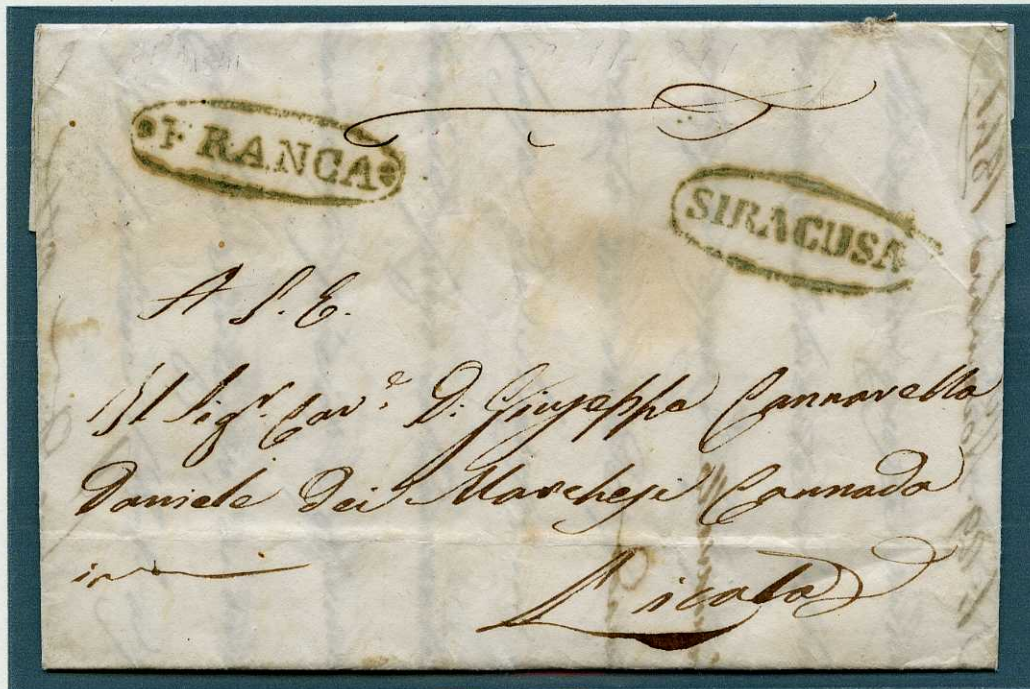 FRANCA
SIRACUSA
A S. E.
Il Sigr. Cave. D. Giuseppe Cannarella
Daniele Dei Marchesi Cannada
in
Licata